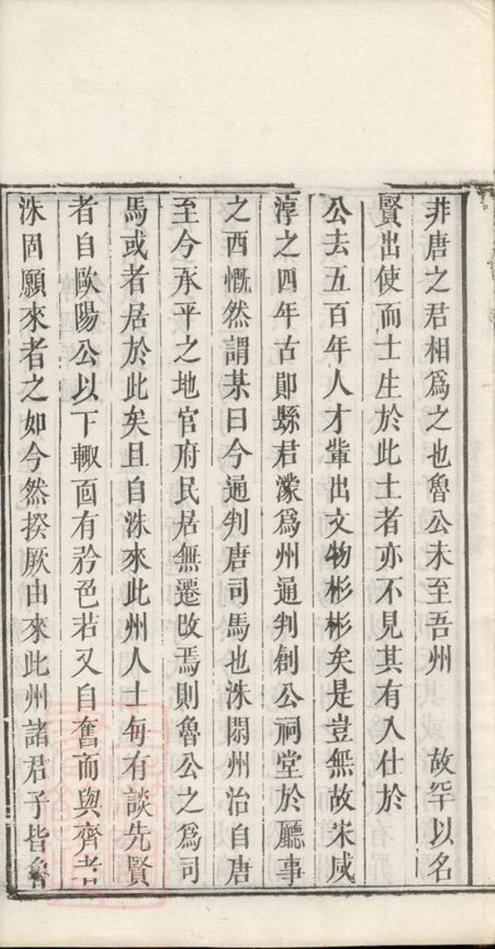 非唐之君相爲之也魯公未至吾州　故罕以名
賢出使而士生於此土者亦不見其有入仕於
公去五百年人才輩出文物彬彬矣是豈無故宋咸
淳之四年古鄖縣君濛爲州通判創公祠堂於廳事
之西慨然謂某曰今通判唐司馬也洙閱州治自唐
至今承平之地官府民居無遷改焉則魯公之爲司
馬或者居於此矣且自洙來此州人士每有談先賢
者自歐陽公以下輙面有矜色若又自奮而與齊者
洙固願來者之如今然揆厥由來此州諸君子皆魯